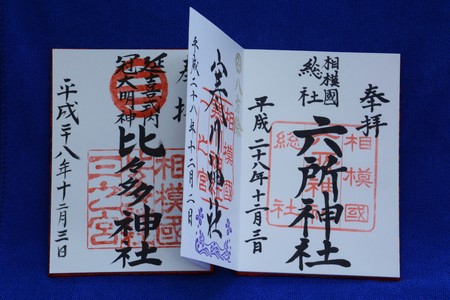 奉拝
相模國
総社
六所神社
平成二十八年十二月三日
相模國
総社
寒川神社
相模國
平成二十八年十二月二日
奉拝
延喜式内
冠大明神
比々多神社
相模國
三之宮
平成二十八年十二月三日